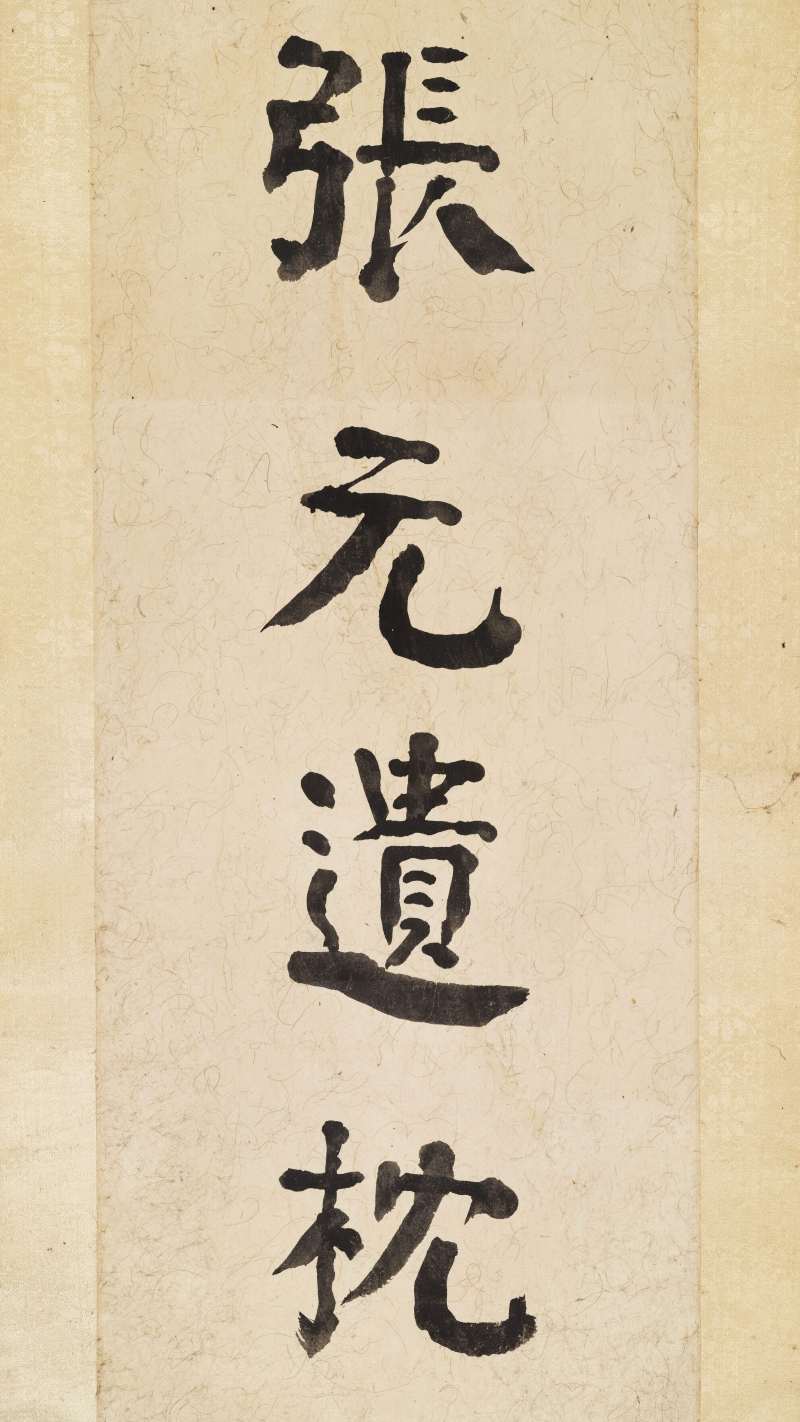 張元遺枕